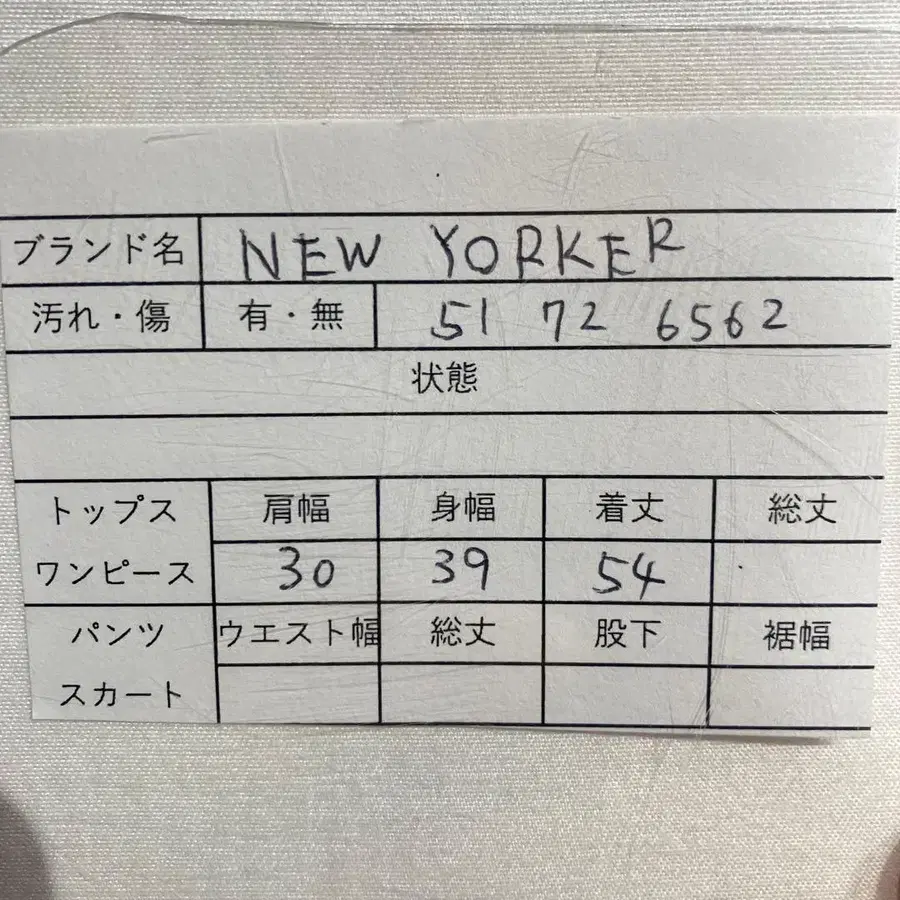 ブランド名 NEW YORKER
汚れ・傷 有・無 51 72 6562
状態
トップス 肩幅 身幅 着丈 総丈
ワンピース 30 39 54
パンツ ウエスト幅 総丈 股下 裾幅
スカート